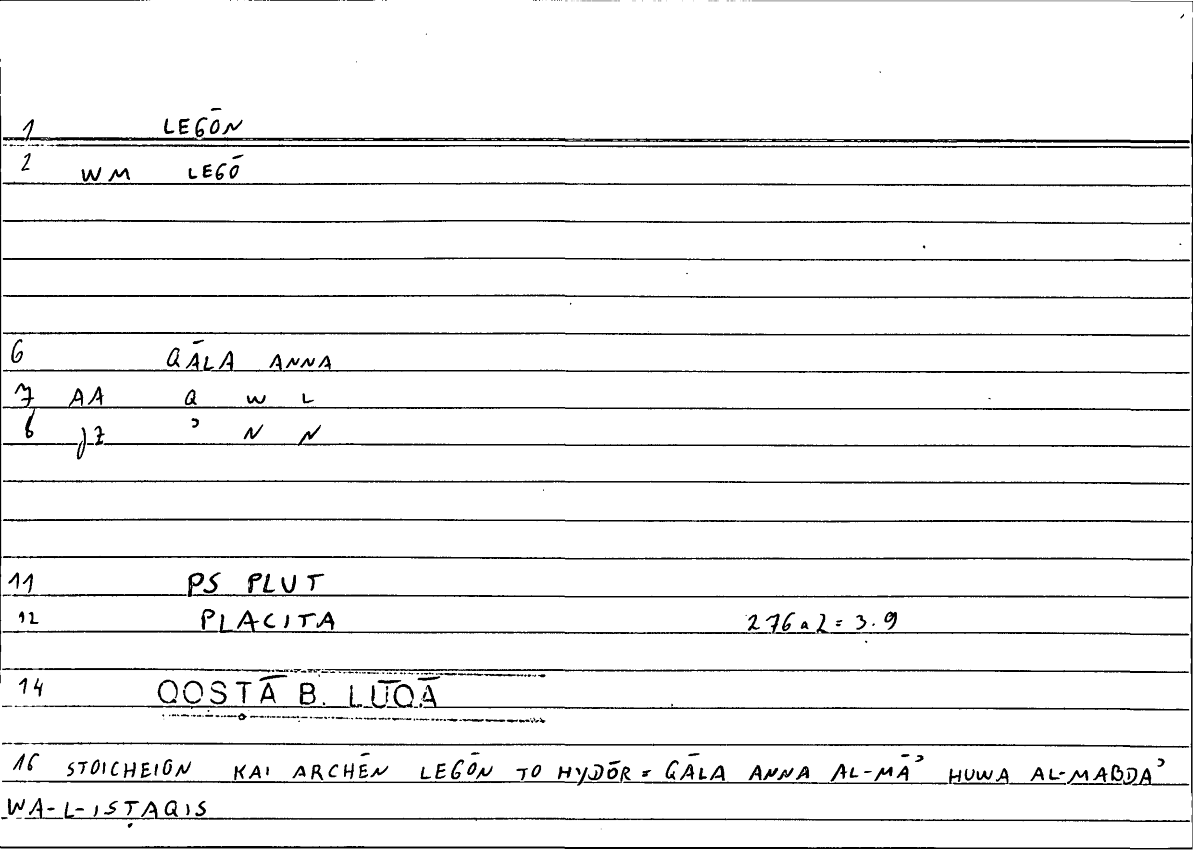 1 LEGŌN
2 WM LEGŌ
6 QĀLA ANNA
7 AA Q W L
8 jz ʾ N N
11 PS PLUT
12 PLACITA 276 a 2 = 3.9
14 QOSṬĀ B. LŪQĀ
16 STOICHEION KAI ARCHĒN LEGŌN TO HYDŌR = QĀLA ANNA AL-MĀʾ HUWA AL-MABDAʾ
WA-L-ISṬAQIS